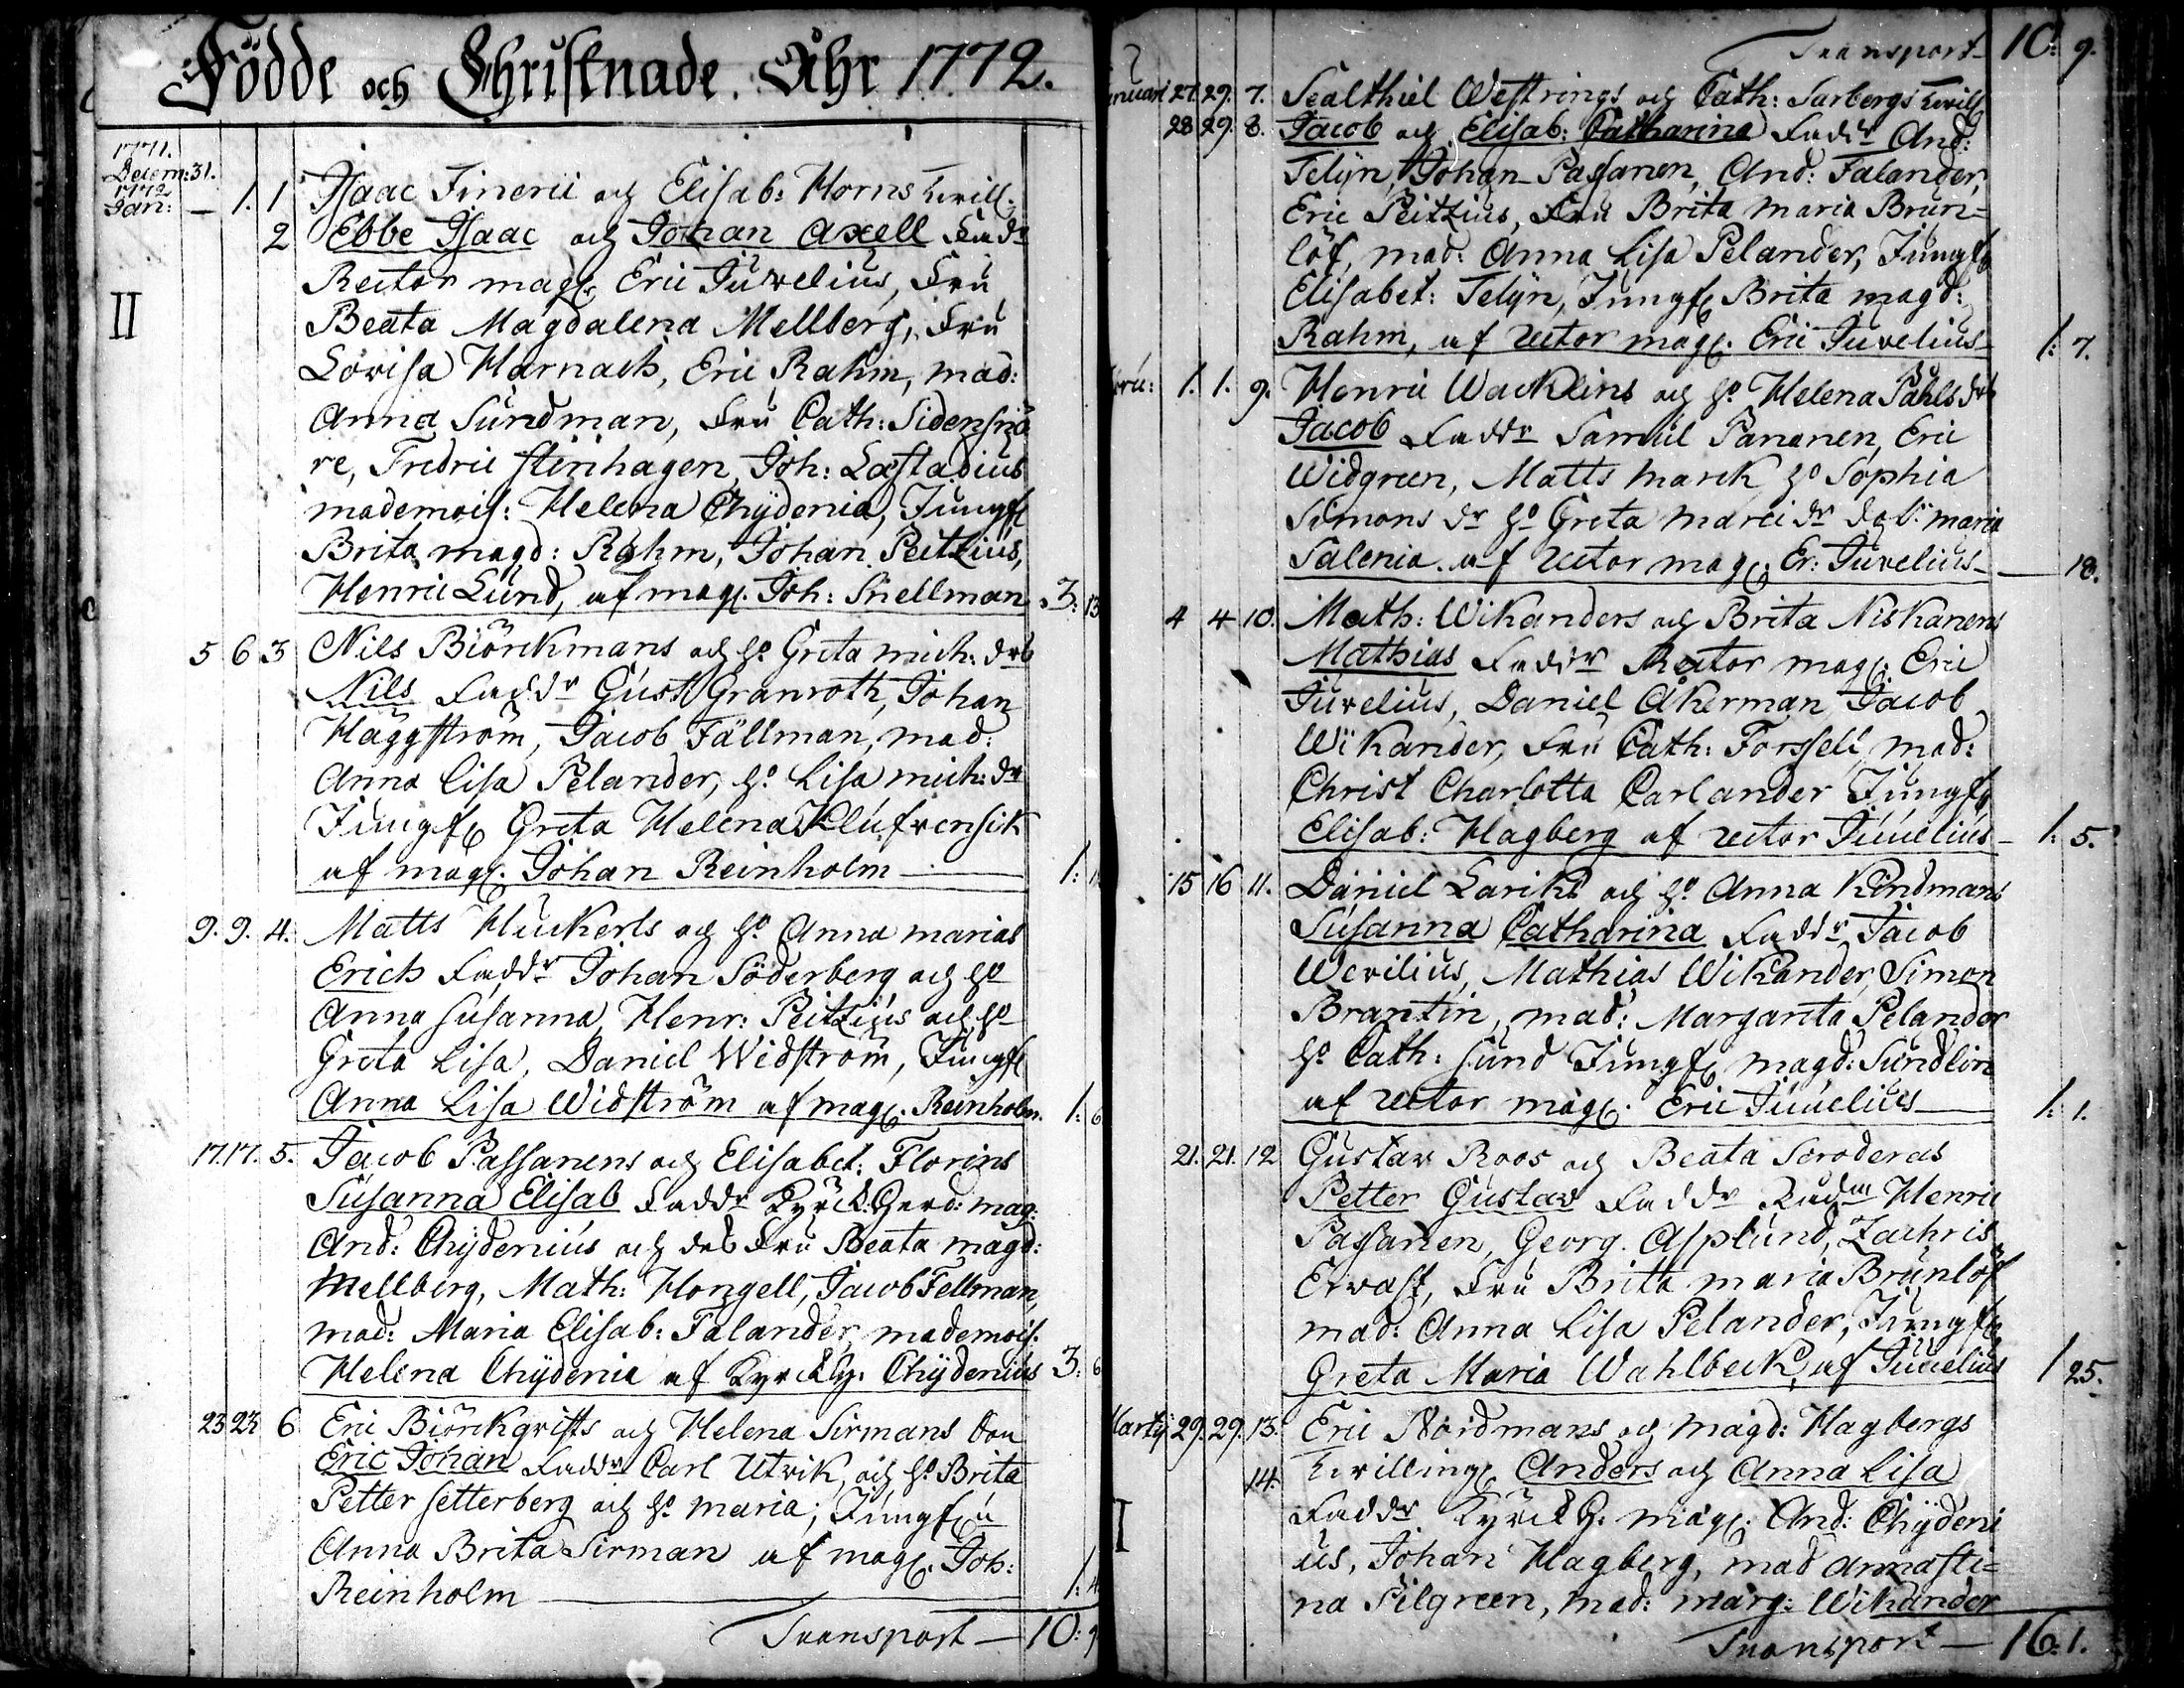 Födde och Christnade. Åhr 1772.
1771.
Decem: 31.
1772
Jan: — 1. 1 Isaac Finerii och Elisab: Horns twill.
2 Ebbe Isaac och Johan Axell Fadr
Rector mag. Eric Juvelius, Fru
II Beata Magdalena Mellberg, Fru
Lovisa Harnack, Eric Rahm, mad:
Anna Sundman, Fru Cath: Sidensnö
re, Fredric Stenhagen, Joh: Læstadius
mademois: Helena Chydenia, Jungf
Brita magd: Rahm, Johan Peitzius,
Henric Lund, af mag. Joh: Snellman 3: 13
5 6 3 Nils Biörckmans och h. Greta mich: drs
Nils Faddr Gust Granroth, Johan
Häggström, Jacob Fällman, mad:
Anna Lisa Pelander, h. Lisa mich: dr
Jungf Greta Helena Klufvensik
af mag. Johan Reinholm — 1:
9. 9. 4. Matts Huckerts och h. Anna marias
Erich Faddr Johan Söderberg och h
Anna Susanna, Henr: Peitzius och h
Greta Lisa, Daniel Widström, Jungf
Anna Lisa Widström af mag. Reinholm. 1: 6
17. 17. 5. Jacob Passanens och Elisabet: Florins
Susanna Elisab Faddr Kyrck Herd: mag:
And: Chydenius och des Fru Beata magd:
Mellberg, Math: Hongell, Jacob Fellman,
mad: Maria Elisab: Falander, mademois.
Helena Chydenia af Kyrck h. Chydenius 3: 6
23 23 6 Eric Biörckqvists och Helena Sirmans Son
Eric Johan Faddr Carl Utvik, och h. Brita
Petter Setterberg och h. maria; Jungf
Anna Brita Sirman af mag. Joh:
Reinholm — 1: 4
Transport — 10: 9
Transport — 10: 9.
nuari 27. 29. 7. Sealthiel Westrings och Cath: Sarbergs twill
28 29. 8. Jacob och Elisab: Catharina Faddr And:
Telyn, Johan Passanen, And: Falander,
Eric Peitzius, Fru Brita Maria Brun=
löf, mad: Anna Lisa Pelander, Jungf
Elisabet: Telyn, Jungf Brita magd:
Rahm, af rector mag. Eric Juvelius 1: 7.
bru: 1. 1. 9. Henric Wacklins och h. Helena Påhls drs
Jacob Faddr Samuel Pananen, Eric
Widgreen, Matts Marck, h Sophia
Simons dr h Greta Marci dr maria
Salenia. af rector mag. Er: Juvelius — 18.
4 4 10. Math: Wikanders och Brita Niskanens
Mathias Faddr Rector mag. Eric
Juvelius, Daniel Åkerman Jacob
Wikander, Fru Cath: Forssell, mad:
Christ Charlotta Carlander Jungf
Elisab: Hagberg af rector Juvelius — 1: 5.
15 16 11. Daniel Lariks och h. Anna Kindmans
Susanna Catharina Faddr Jacob
Wevilius, Mathias Wikander, Simon
Brantin, mad: Margareta Pelander
h. Cath: Sund Jungf magd: Sundlin
af rector mag. Eric Juvelius — 1: 1.
21. 21. 12 Gustav Roos och Beata Scroderas
Petter Gustav Faddr Rådm Henric
Passanen, Georg. Asplund, Zachris
Ervast, Fru Brita maria Brunlöf
mad: Anna Lisa Pelander, Jungf
Greta Maria Wahlbeck, af Juvelius 1 25.
Martij 29. 29. 13. Eric Nordmans och magd: Hagbergs
14. twilling. Anders och Anna Lisa
Faddr Kyrck h. mag. And: Chydeni
I us, Johan Hagberg, mad Anna Sti=
na Pilgreen, mad: marg: Wikander
Transport — 16. 1.